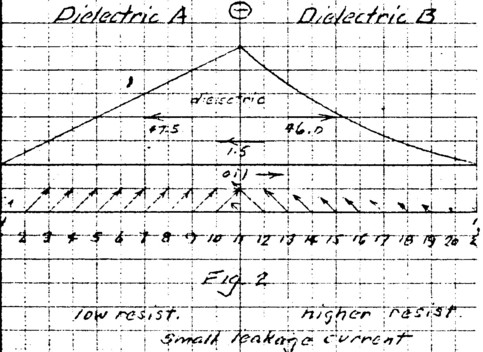 Dielectric A + Dielectric B
dielectric
47.5 46.0
1.5
oil
1 2 3 4 5 6 7 8 9 10 11 12 13 14 15 16 17 18 19 20 2
Fig 2
low resist. higher resist.
small leakage current